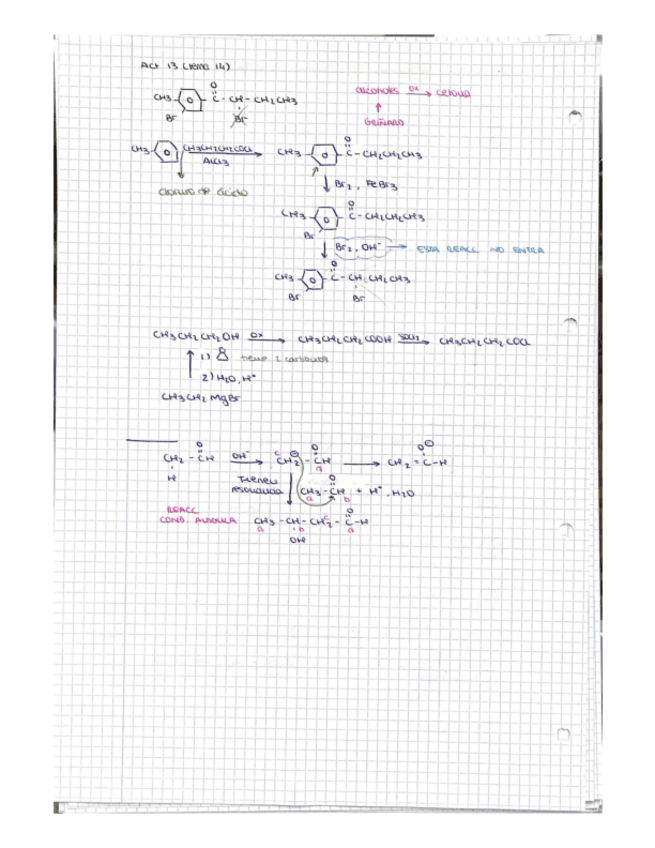 Act 13 (tema 14)
O
CH3 C - CH - CH2CH3
Br Br
alcoholes ox → cetona
↑
GRIÑARD
CH3 CH3CH2CH2COCl → CH3 O C - CH2CH2CH3
AlCl3
cloruro de ácido
↓ Br2, FeBr3
O
CH3 C - CH2CH2CH3
Br
↓ Br2, OH- → ESTA REACC NO ENTRA
O
CH3 C - CH CH2CH3
Br Br
CH3CH2CH2OH ox → CH3CH2CH2COOH SOCl2 → CH3CH2CH2COCl
↑ 1) O tiene 2 carbonos
2) H2O, H+
CH3CH2MgBr
O O O⊖
CH2 - CH OH- → c CH2⊖ - CH a → CH2 = C - H
H
Tienen resonancia ↓ O
CH3 - CH + H+, H2O
a b
REACC
COND. ALDÓLICA CH3 - CH - CH2 - C - H
O
a b c a
OH